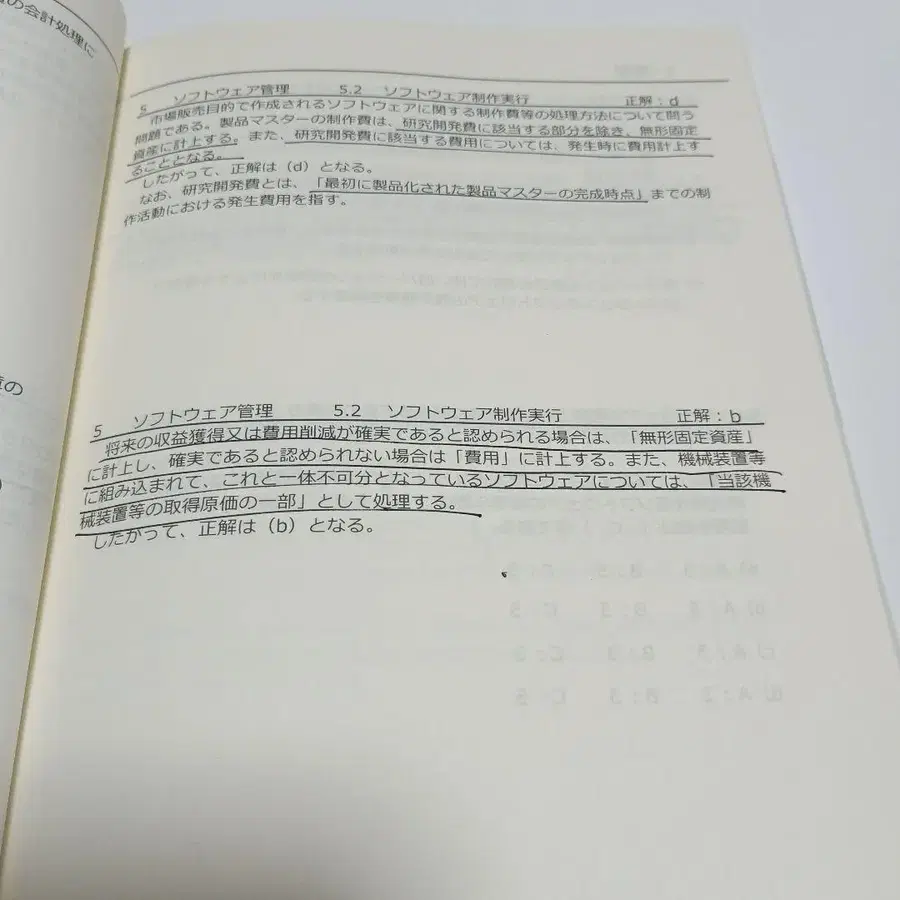 の会計処理に
の
5　ソフトウェア管理　5.2　ソフトウェア制作実行　正解：d
市場販売目的で作成されるソフトウェアに関する制作費等の処理方法について問う
問題である。製品マスターの制作費は、研究開発費に該当する部分を除き、無形固定
資産に計上する。また、研究開発費に該当する費用については、発生時に費用計上す
ることとなる。
したがって、正解は（d）となる。
なお、研究開発費とは、「最初に製品化された製品マスターの完成時点」までの制
作活動における発生費用を指す。
5　ソフトウェア管理　5.2　ソフトウェア制作実行　正解：b
将来の収益獲得又は費用削減が確実であると認められる場合は、「無形固定資産」
に計上し、確実であると認められない場合は「費用」に計上する。また、機械装置等
に組み込まれて、これと一体不可分となっているソフトウェアについては、「当該機
械装置等の取得原価の一部」として処理する。
したがって、正解は（b）となる。